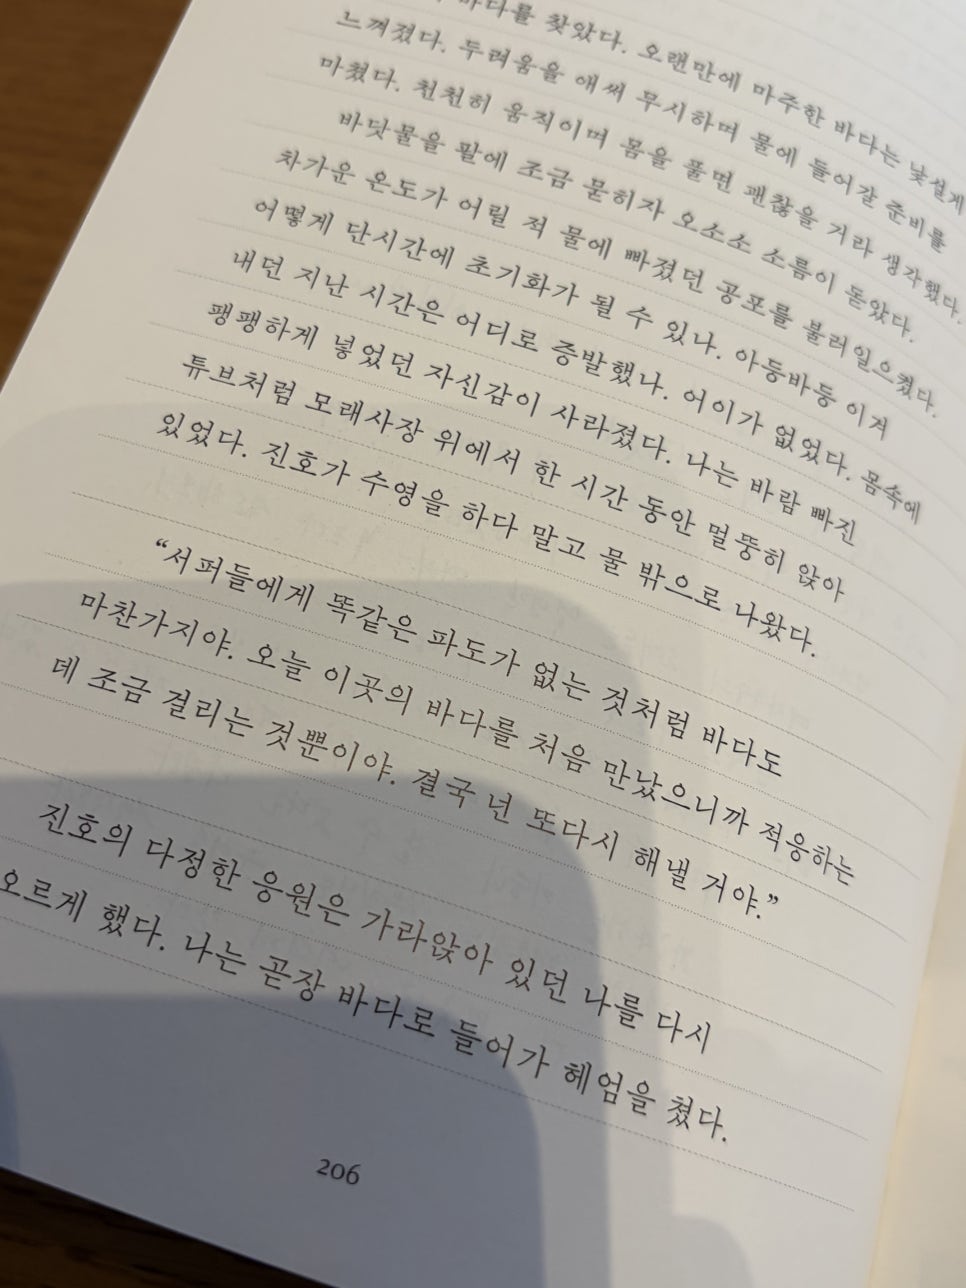 바다를 찾았다. 오랜만에 마주한 바다는 낯설게
느껴졌다. 두려움을 애써 무시하며 물에 들어갈 준비를
마쳤다. 천천히 움직이며 몸을 풀면 괜찮을 거라 생각했다.
바닷물을 팔에 조금 묻히자 오소소 소름이 돋았다.
차가운 온도가 어릴 적 물에 빠졌던 공포를 불러일으켰다.
어떻게 단시간에 초기화가 될 수 있나. 아등바등 이겨
내던 지난 시간은 어디로 증발했나. 어이가 없었다. 몸속에
팽팽하게 넣었던 자신감이 사라졌다. 나는 바람 빠진
튜브처럼 모래사장 위에서 한 시간 동안 멀뚱히 앉아
있었다. 진호가 수영을 하다 말고 물 밖으로 나왔다.
“서퍼들에게 똑같은 파도가 없는 것처럼 바다도
마찬가지야. 오늘 이곳의 바다를 처음 만났으니까 적응하는
데 조금 걸리는 것뿐이야. 결국 넌 또다시 해낼 거야.”
진호의 다정한 응원은 가라앉아 있던 나를 다시
오르게 했다. 나는 곧장 바다로 들어가 헤엄을 쳤다.
206